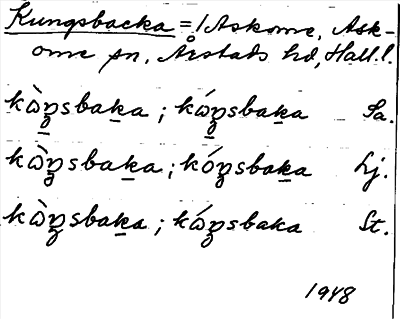 Kungsbacka = /Askome, Ask-
ome sn, Årstads hd, Hall. l.
kɷ̀ŋ̱sbaḵa ; kɷ́ŋ̱sbaḵa Sa.
kɷ̀ŋsbaḵa ; kóŋsbaḵa Lj.
kɷ̀ŋsbaḵa ; kɷ́ŋsbaka St.
1948